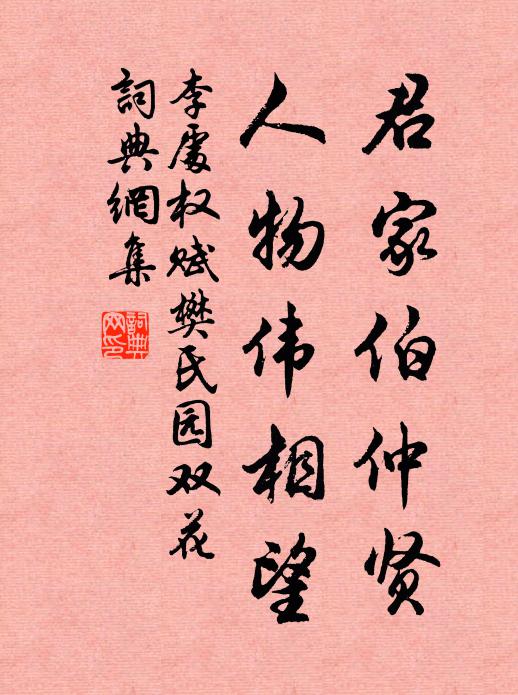 君家伯仲贤
人物伟相望
李處权赋樊氏园双花
詞典網集
詞典網印